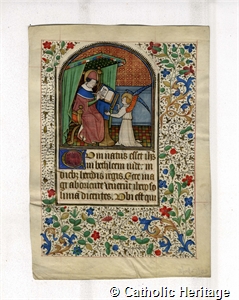 Cum natus esset ihs
in bethleem iude in
dieb; herodis regis. Ecce ma
gi ab oriente venerūt iheroso
limā dicentes: Ubi est qui
© Catholic Heritage